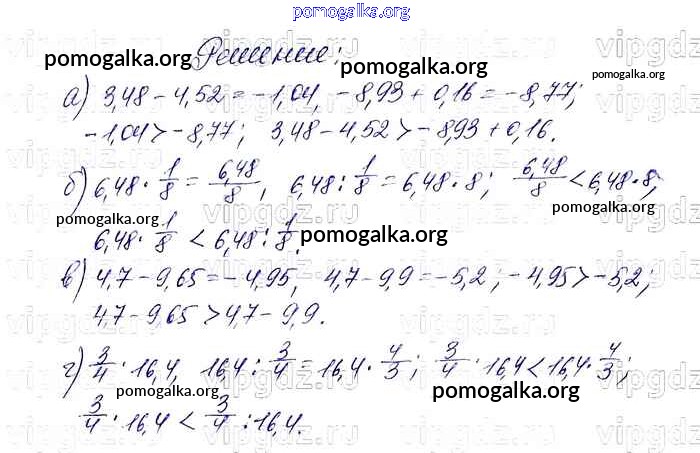 pomogalka.org
Решение:
а) 3,48 - 4,52 = -1,04, -8,93 + 0,16 = -8,77;
-1,04 > -8,77; 3,48 - 4,52 > -8,93 + 0,16.
б) 6,48 · 1/8 = 6,48/8, 6,48 : 1/8 = 6,48 · 8; 6,48/8 < 6,48 · 8;
6,48 · 1/8 < 6,48 : 1/8.
в) 4,7 - 9,65 = -4,95, 4,7 - 9,9 = -5,2; -4,95 > -5,2;
4,7 - 9,65 > 4,7 - 9,9.
г) 3/4 · 16,4, 16,4 : 3/4 = 16,4 · 4/3; 3/4 · 16,4 < 16,4 · 4/3;
3/4 · 16,4 < 3/4 : 16,4.
pomogalka.org
pomogalka.org
pomogalka.org
pomogalka.org
pomogalka.org
pomogalka.org
pomogalka.org
pomogalka.org
pomogalka.org
vipgdz.ru